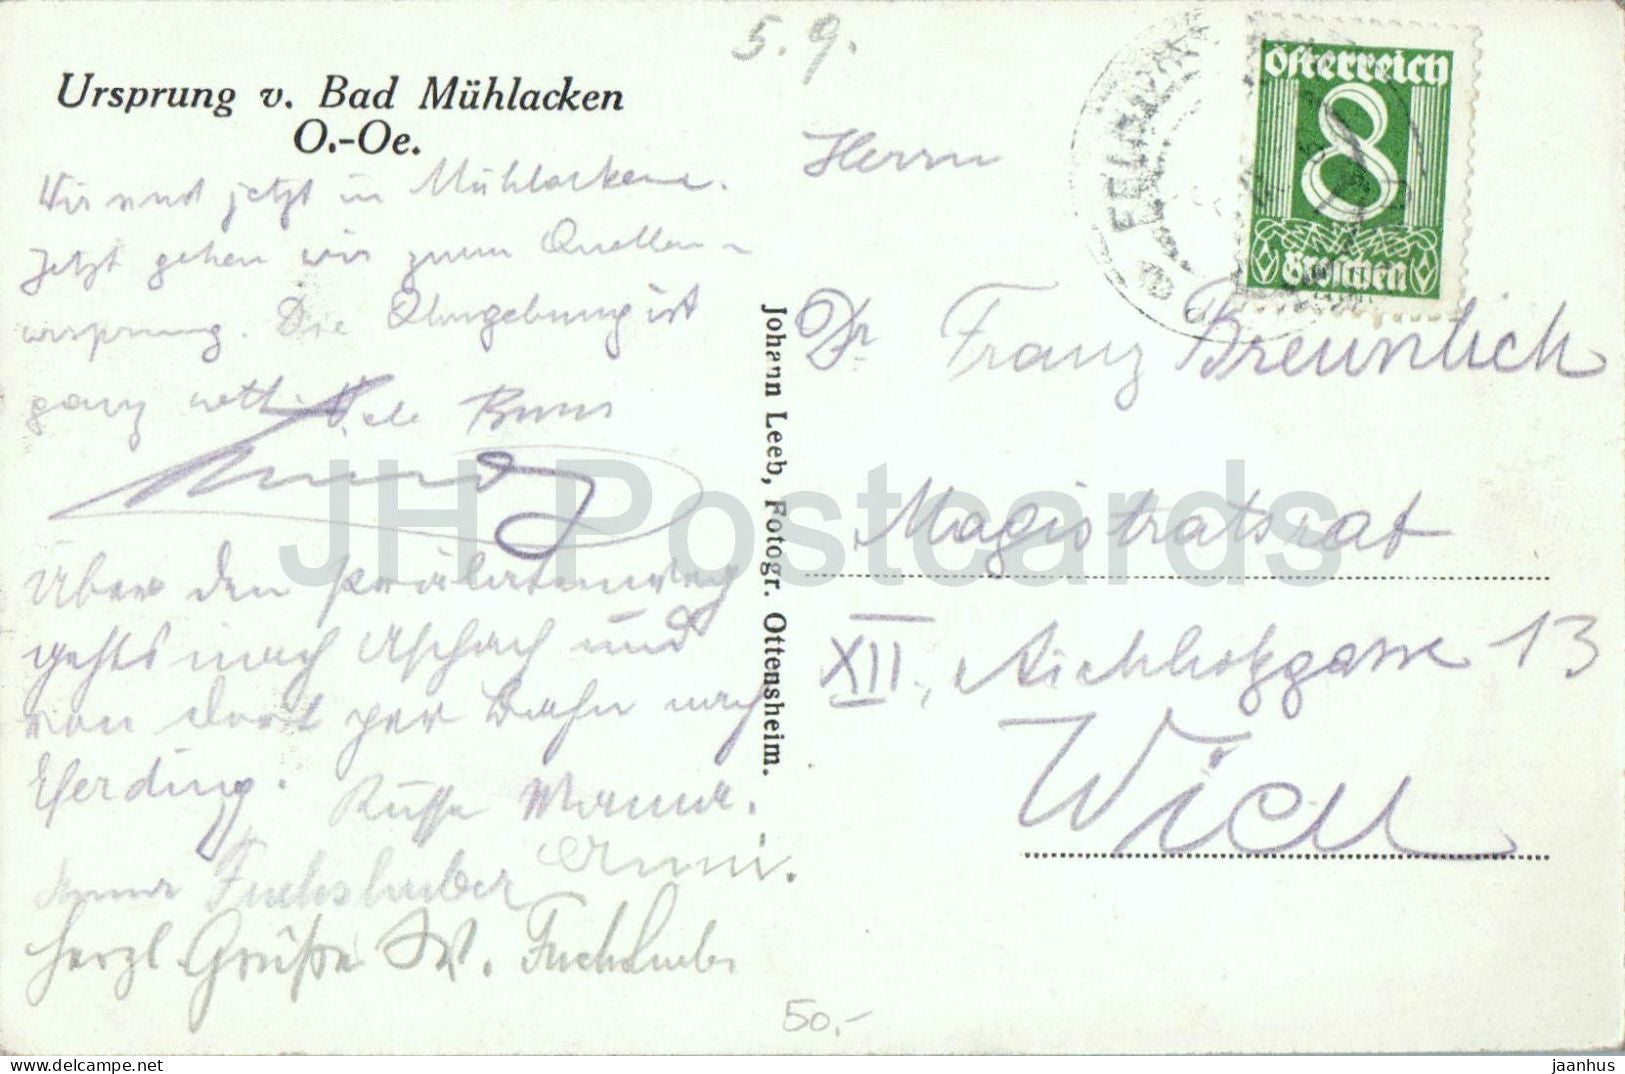 5. 9.
Ursprung v. Bad Mühlacken
O.-Oe.
Wir sind jetzt in Mühlacken.
Jetzt gehen wir zum Quellen-
ursprung. Die Umgebung ist
ganz nett. Viele Bussi
Über den Prälatenweg
gehts nach Aschach und
von dort per Bahn nach
Eferding.
Küsse Mama.
Anni.
Anna Fuchshuber
Herzl Grüße W. Fuchshuber
Johann Leeb, Fotogr. Ottensheim.
Österreich
8
Groschen
Herrn
Dr Franz Breunlich
Magistratsrat
XII, Aichholzgasse 13
Wien
50,-
JH Postcards
delcampe.net
jaanhus